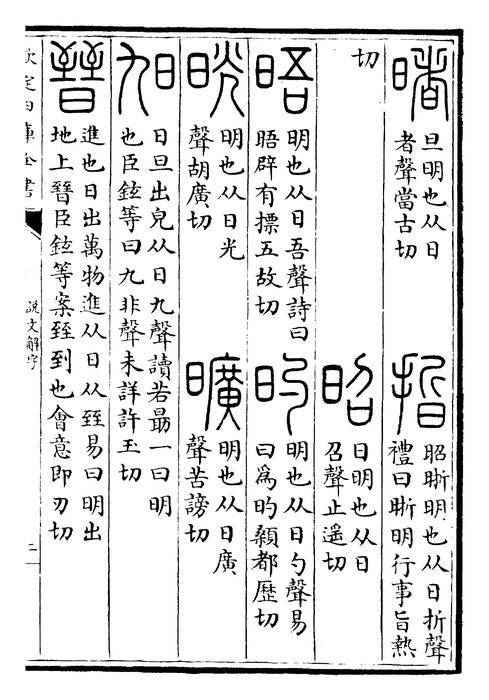 暏
旦明也从日
者聲當古切
晢
昭晣明也从日折聲
禮曰晣明行事旨熱
切
昭
日明也从日
召聲止遥切
晤
明也从日吾聲詩曰
晤辟有摽五故切
旳
明也从日勺聲易
曰為旳顙都歷切
晄
明也从日光
聲胡廣切
曠
明也从日廣
聲苦謗切
旭
日旦出皃从日九聲讀若朂一曰明
也臣鉉等曰九非聲未詳許玉切
晉
進也日出萬物進从日从臸易曰明出
地上㬜臣鉉等案臸到也會意即刃切
欽定四庫全書
說文解字
二